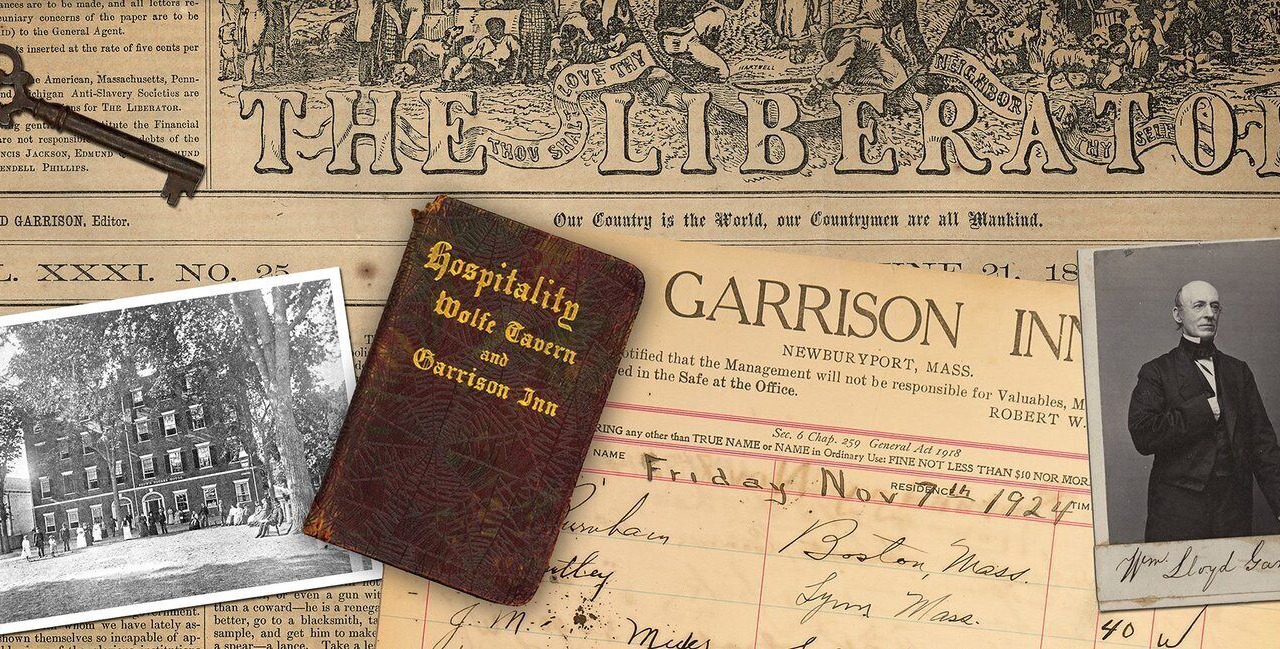 ances are to be made, and all letters re-
cuniary concerns of the paper are to be
ID) to the General Agent.
ts inserted at the rate of five cents per
e American, Massachusetts, Penn-
nd Michigan Anti-Slavery Societies are
ns for THE LIBERATOR.
ng gent
itute the Financial
are not responsible
debts of the
NCIS JACKSON, EDMUND
MUND
ENDELL PHILLIPS.
HARTWELL
THOU SHALT LOVE THY NEIGHBOR
THY SELF
THE LIBERATO
D GARRISON, Editor.
Our Country is the World, our Countrymen are all Mankind.
L. XXXI. NO. 25.
UNE 21, 18
Hospitality
Wolfe Tavern
and
Garrison Inn
GARRISON INN
NEWBURYPORT, MASS.
otified that the Management will not be responsible for Valuables, M
ed in the Safe at the Office.
ROBERT W.
Sec. 6 Chap. 259 General Act 1918
RING any other than TRUE NAME or NAME in Ordinary Use: FINE NOT LESS THAN $10 NOR MOR
NAME
RESIDENCE
TIM
Friday Nov 7th 1924
Burnham
Boston, Mass.
Lynn Mass.
J. M.
40 W
Wm. Lloyd Gar
or even a gun wit
than a coward—he is a renega
better, go to a blacksmith, ta
sample, and get him to make
a spear—a lance. Take a le
ernment.
whom we have lately as-
hown themselves so incapable of ap-